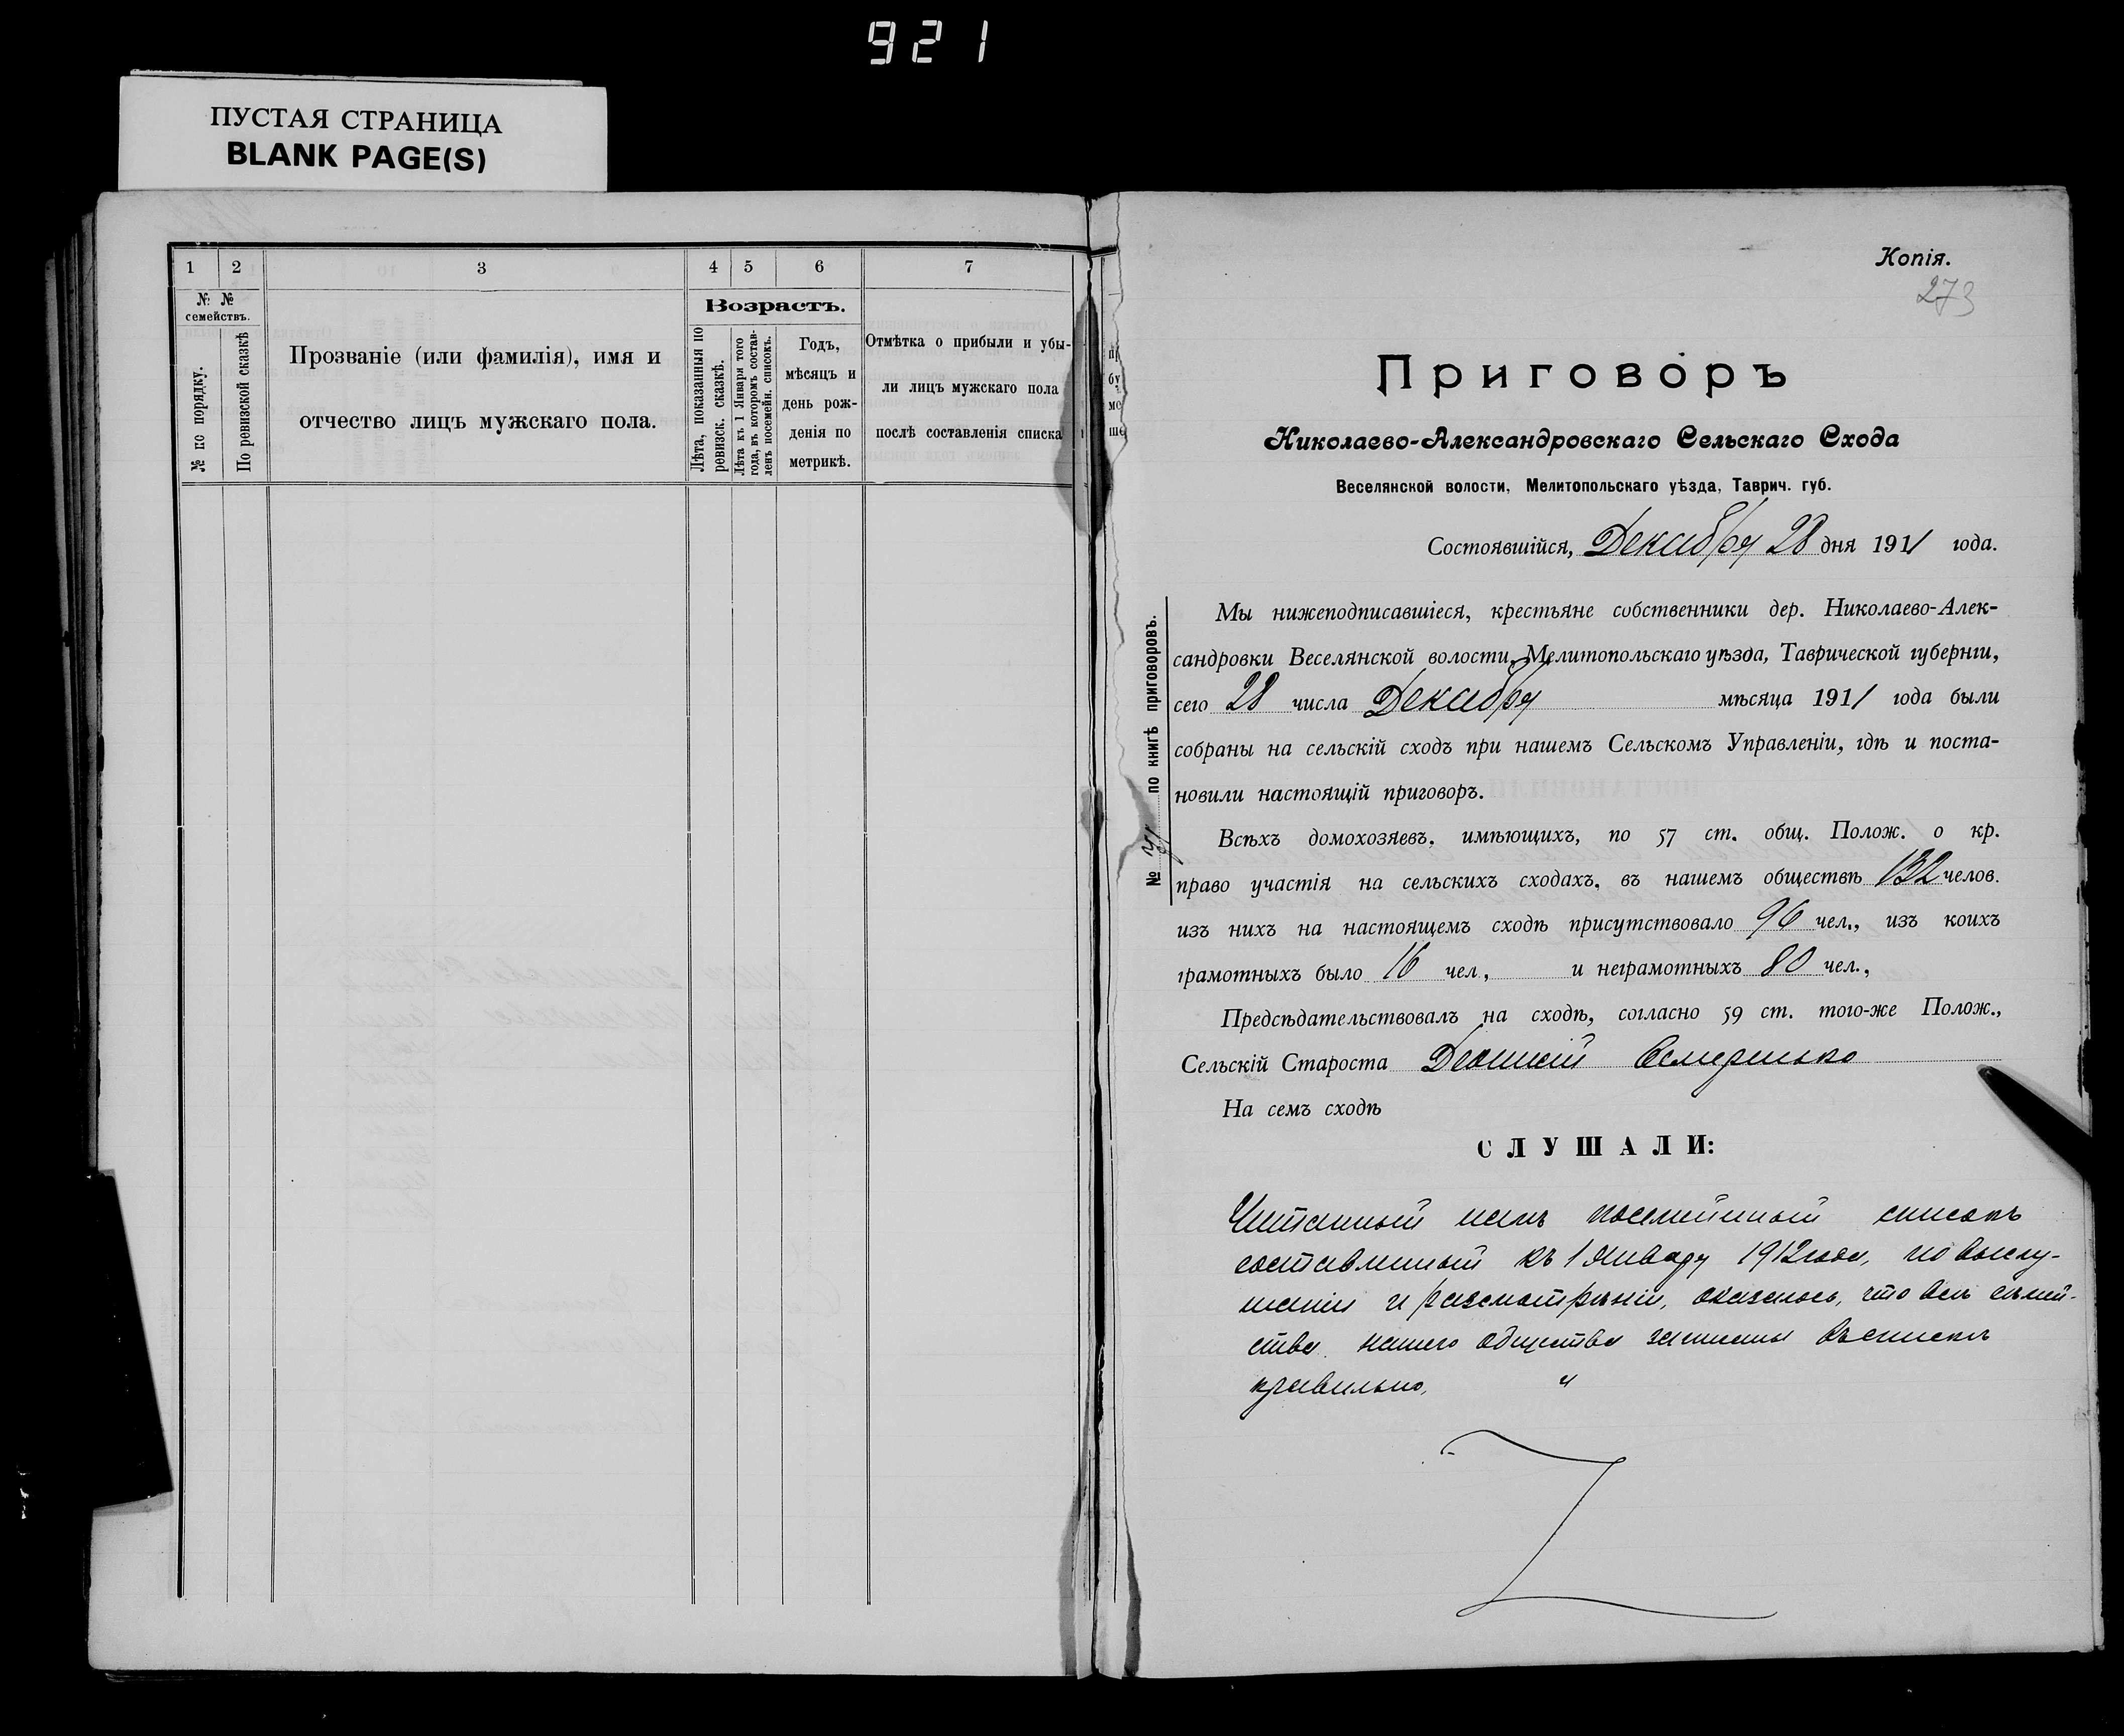 921
ПУСТАЯ СТРАНИЦА
BLANK PAGE(S)
1 2 3 4 5 6 7
№ №
семействъ.
№ по порядку.
По ревизской сказкѣ
Прозваніе (или фамилія), имя и
отчество лицъ мужскаго пола.
Возрастъ.
Лѣта, показанныя по
ревизск. сказкѣ.
Лѣта къ 1 Января того
года, въ которомъ состав-
ленъ посемейн. списокъ.
Годъ,
мѣсяцъ и
день рож-
денія по
метрикѣ.
Отмѣтка о прибыли и убы-
ли лицъ мужскаго пола
послѣ составленія списка
Копія.
273
Приговоръ
Николаево-Александровскаго Сельскаго Схода
Веселянской волости, Мелитопольскаго уѣзда, Таврич. губ.
Состоявшійся, Декабря 28 дня 1911 года.
№ по книгѣ приговоровъ.
Мы нижеподписавшіеся, крестьяне собственники дер. Николаево-Алек-
сандровки Веселянской волости, Мелитопольскаго уѣзда, Таврической губерніи,
сего 28 числа Декабря мѣсяца 1911 года были
собраны на сельскій сходъ при нашемъ Сельскомъ Управленіи, гдѣ и поста-
новили настоящій приговоръ.
Всѣхъ домохозяевъ, имѣющихъ, по 57 ст. общ. Полож. о кр.
право участія на сельскихъ сходахъ, въ нашемъ обществѣ 132 челов.
изъ нихъ на настоящемъ сходѣ присутствовало 96 чел., изъ коихъ
грамотныхъ было 16 чел., и неграмотныхъ 80 чел.,
Предсѣдательствовалъ на сходѣ, согласно 59 ст. того-же Полож.,
Сельскій Староста
На семъ сходѣ
СЛУШАЛИ:
Читанный намъ посемейный списокъ
составленный къ 1 Январу 1912 года, по выслу-
шаніи и разсмотрѣніи, оказалось, что всѣ сѣмей-
ства нашего общества записаны въ списокъ
правильно,